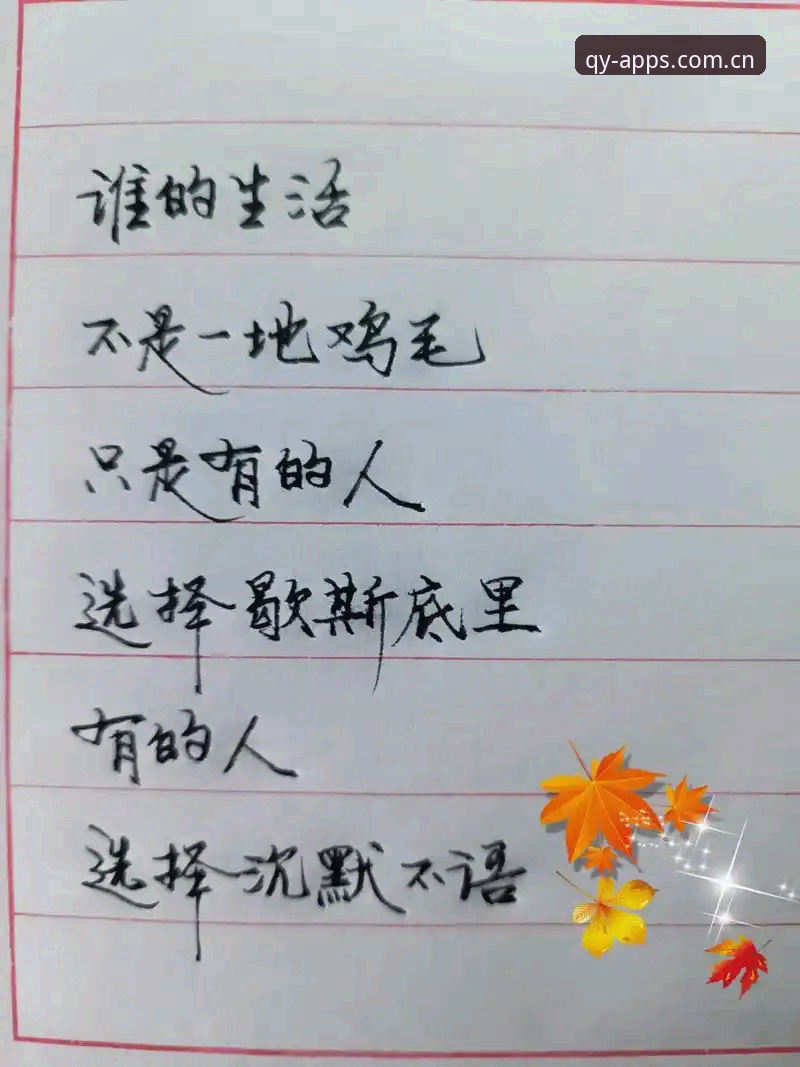 qy-apps.com.cn
谁的生活
不是一地鸡毛
只是有的人
选择歇斯底里
有的人
选择沉默不语